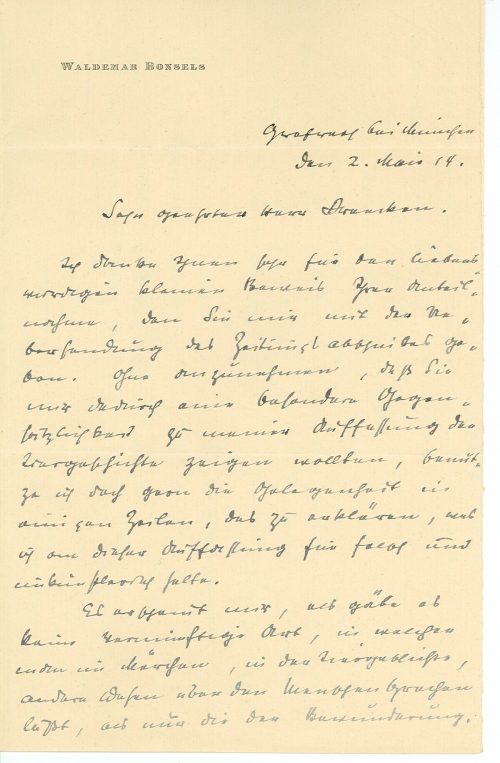 WALDEMAR BONSELS
Grafrath bei München
den 2. Mai 14.
Sehr geehrter Herr
Ich danke Ihnen sehr für den liebens
würdigen kleinen Beweis Ihrer Anteil-
nahme, den Sie mir mit der Ue-
bersendung des Zeitungsabschnittes ge-
ben. Ohne anzunehmen, daß Sie
mir dadurch eine besondere Gegen-
sätzlichkeit zu meiner Auffassung der
Tiergeschichte zeigen wollten, benut-
ze ich doch gern die Gelegenheit in
einigen Zeilen, das zu erklären, was
ich an dieser Auffassung für falsch und
unkünstlerisch halte.
Es erscheint mir, als gäbe es
keine vernünftige Art, in welcher
man im Märchen, in der Tiergeschichte,
andere Wesen über den Menschen sprechen
läßt, als nur die der Bewunderung.